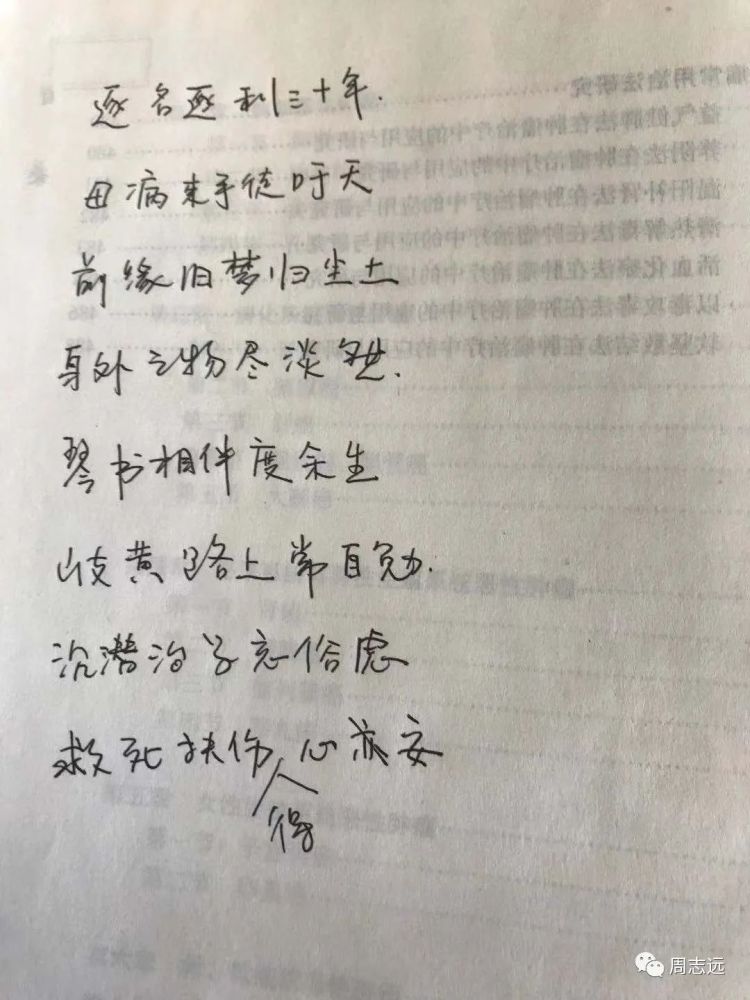 逐名逐利三十年.
母病束手徒吁天
前缘旧梦归尘土
身外之物尽淡然.
琴书相伴度余生
岐黄路上常自勉.
沉潜治学忘俗虑
救死扶伤心亦安
得
周志远